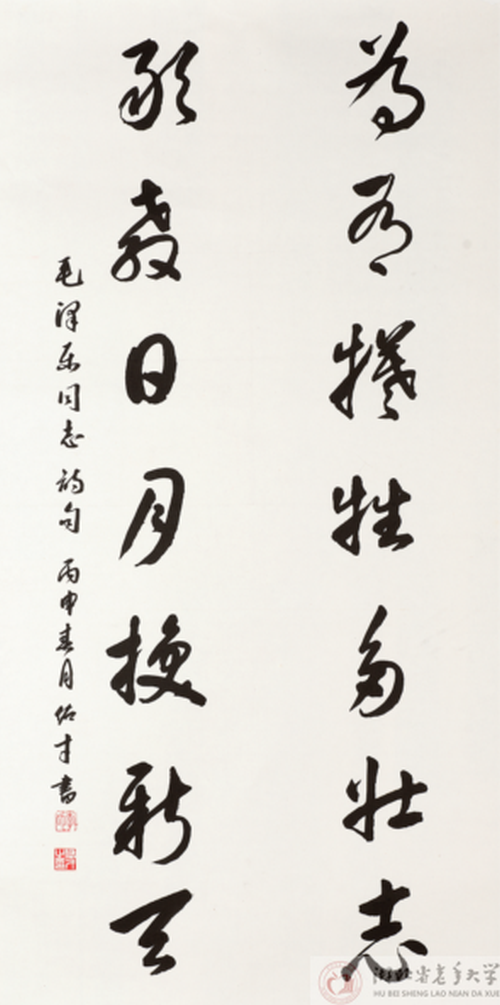 为有犠牲多壮志
敢教日月换新天
毛泽东同志诗句 丙申春月佑才书
湖北省老年大学
HU BEI SHENG LAO NIAN DA XUE